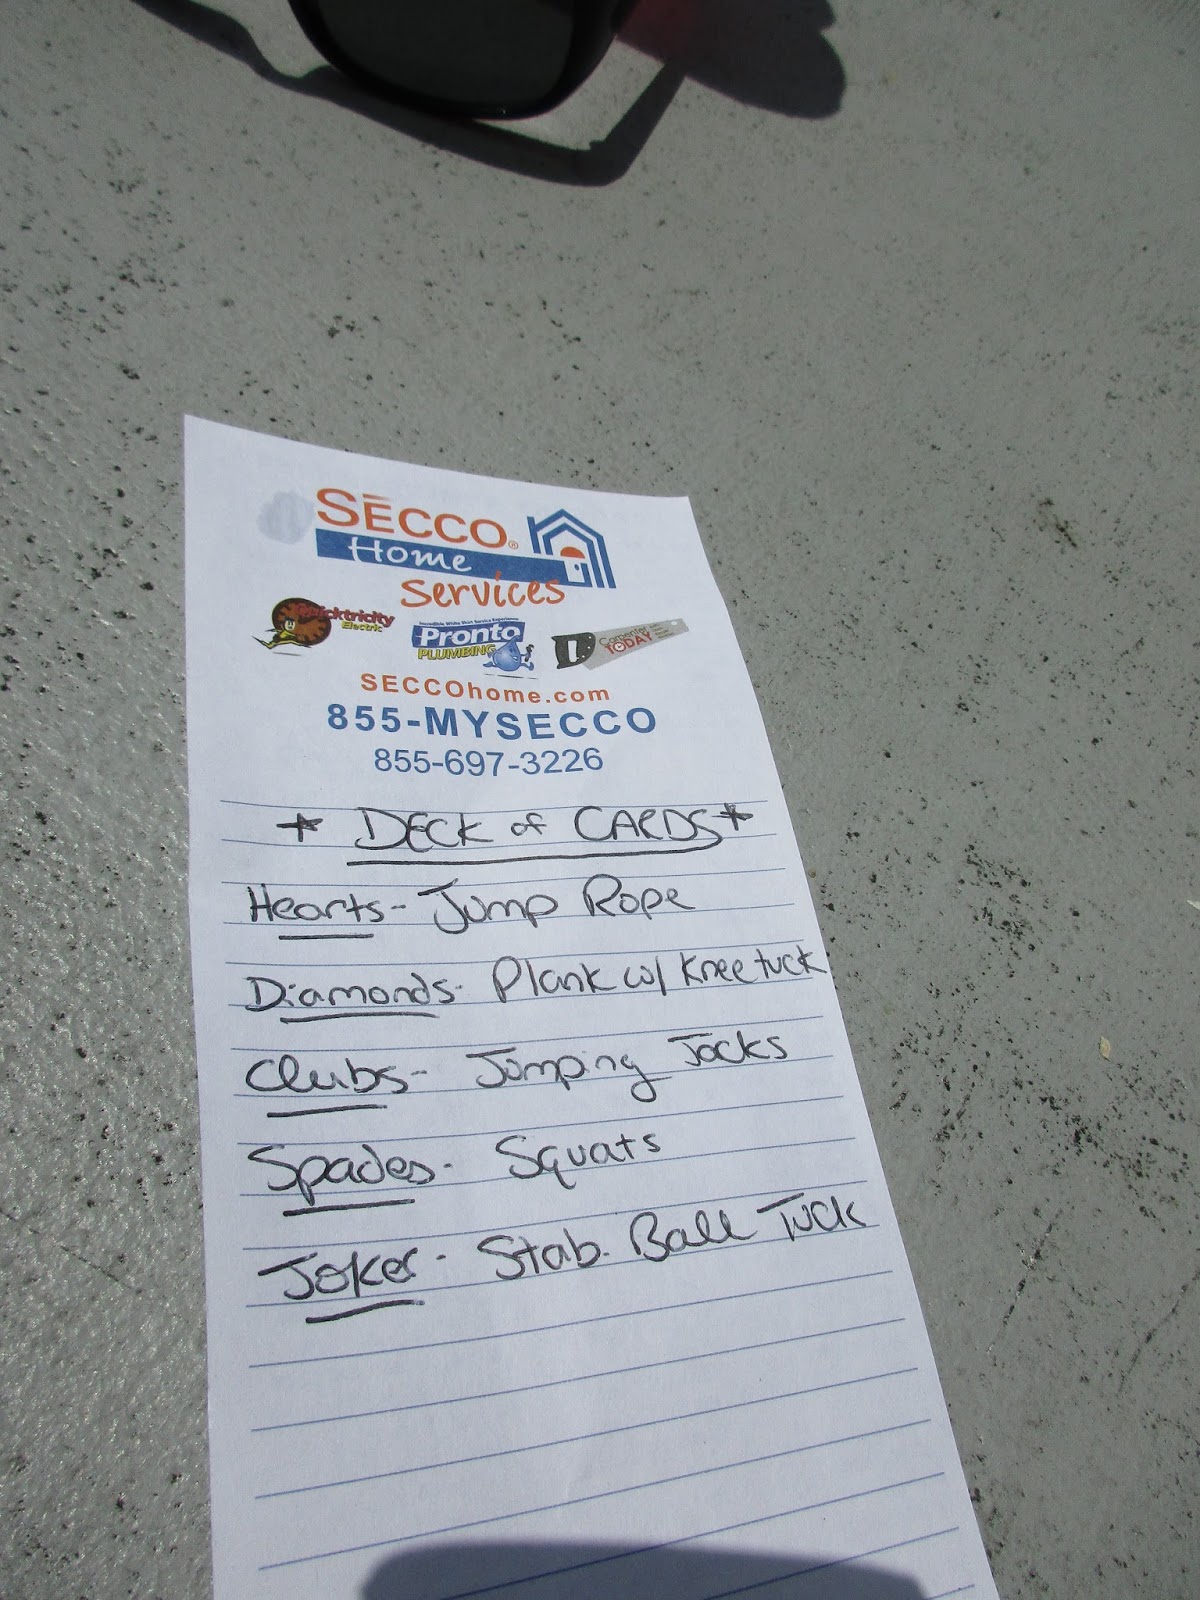 SECCO®
Home
Services
Quicktricity
Electric
Pronto
PLUMBING
Carpenter
TODAY
SECCOhome.com
855-MYSECCO
855-697-3226
* DECK of CARDS *
Hearts- Jump Rope
Diamonds- Plank w/ Knee tuck
Clubs- Jumping Jacks
Spades- Squats
Joker- Stab. Ball Tuck